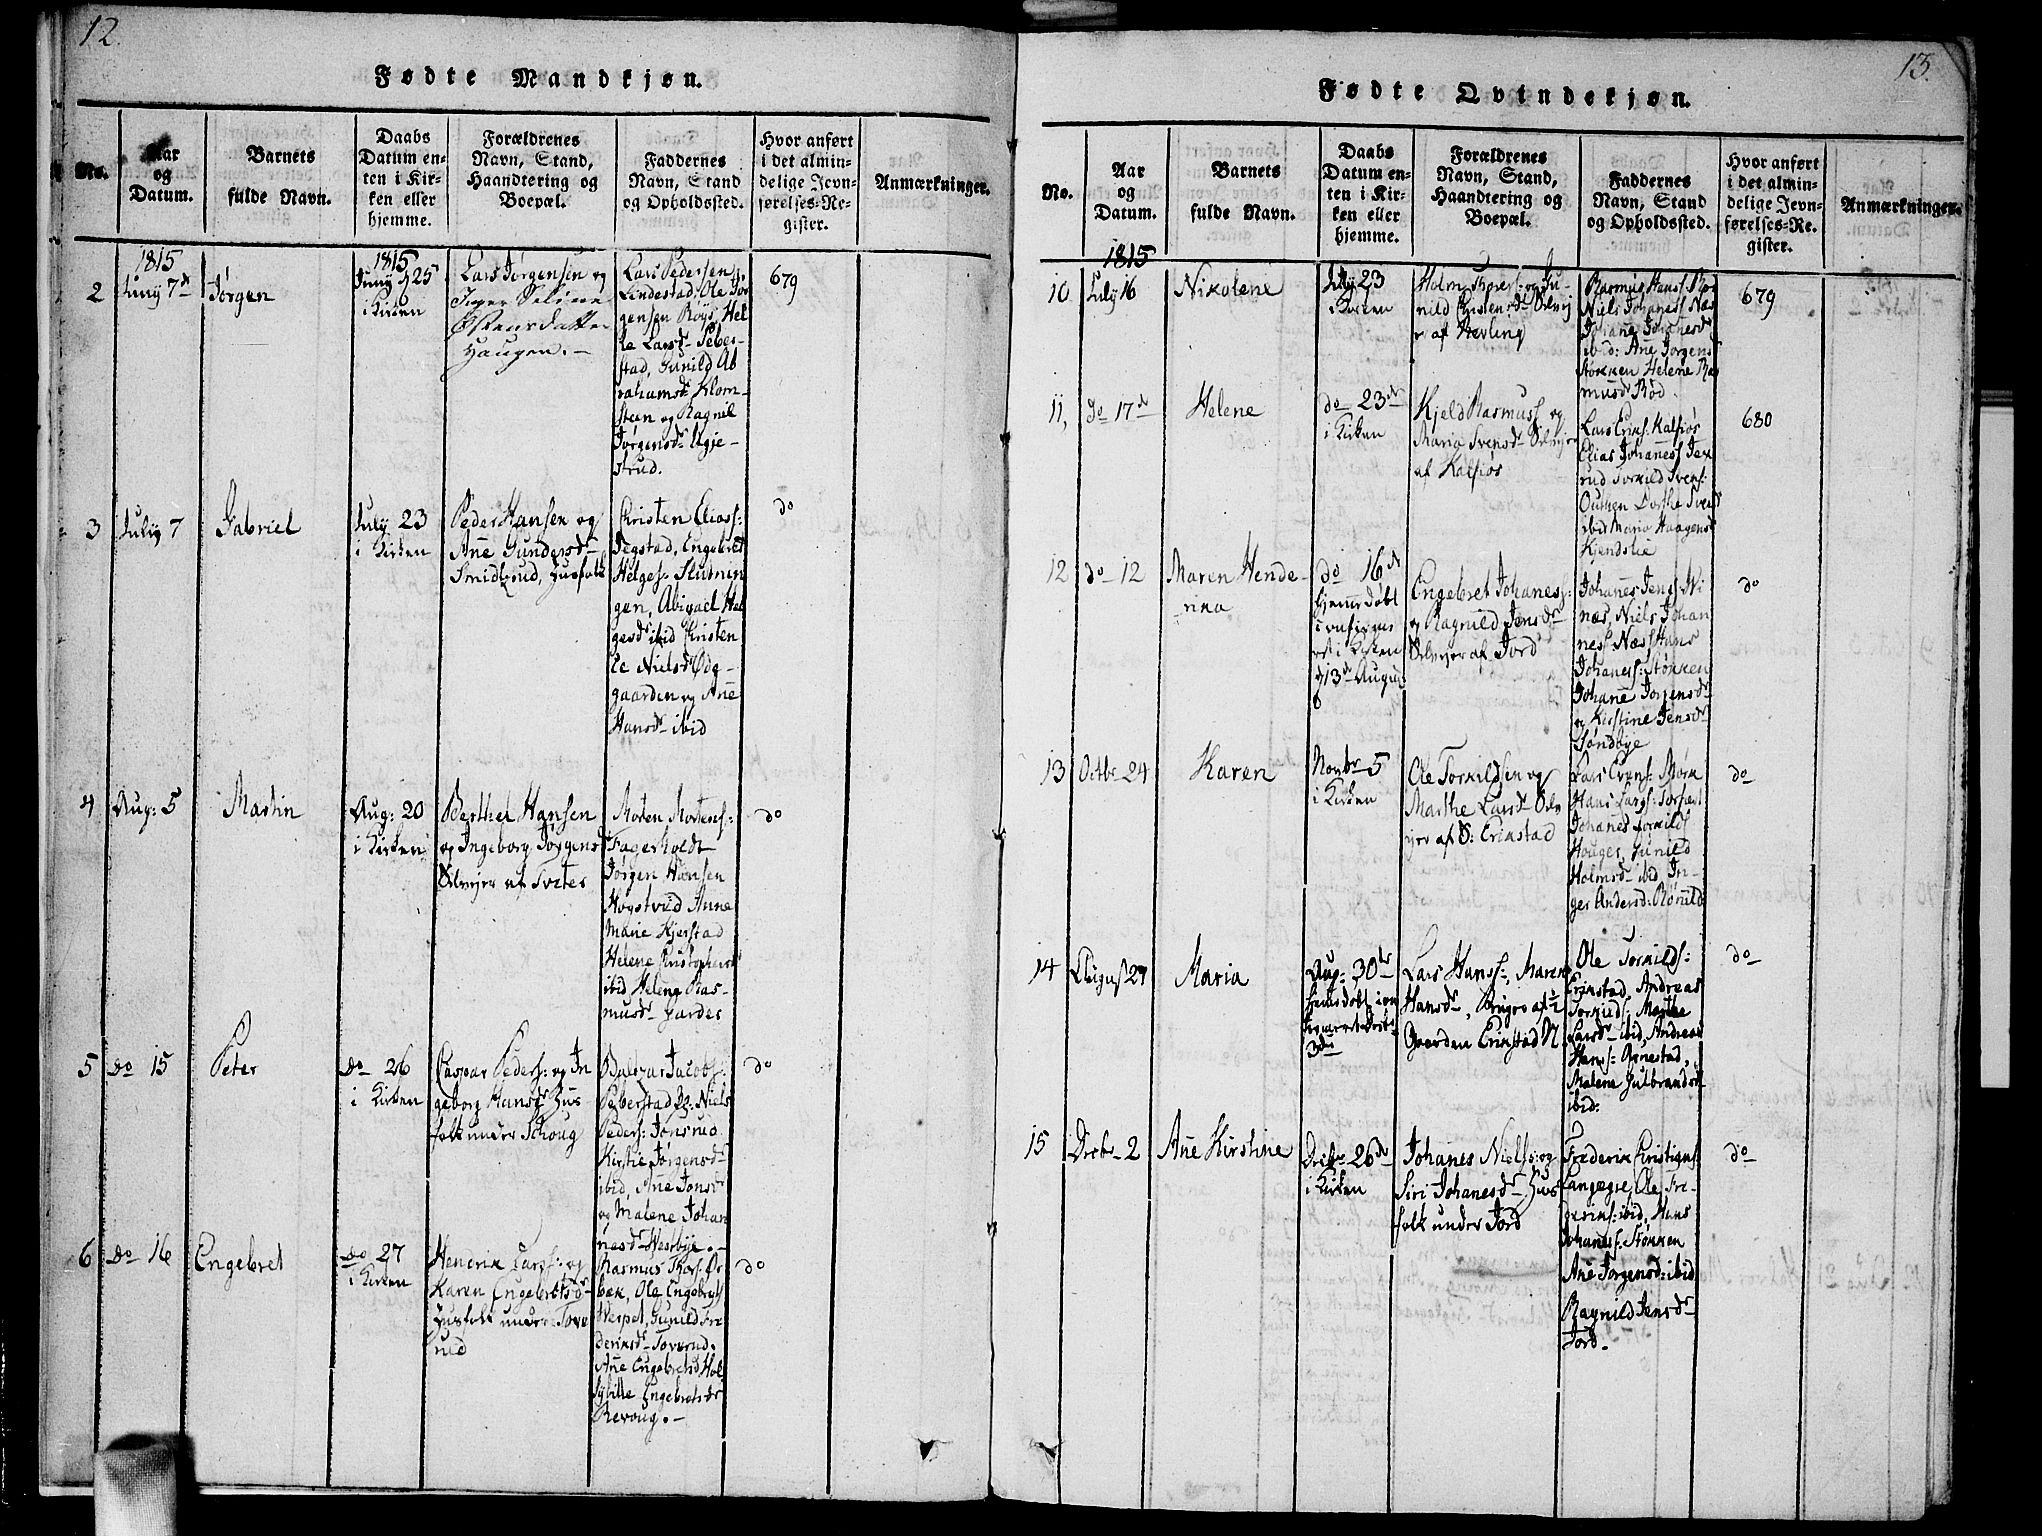 12.
Fødte Mandkjøn.
No.
Aar
og
Datum.
Barnets
fulde Navn.
Daabs
Datum en-
ten i Kir-
ken eller
hjemme.
Forældrenes
Navn, Stand,
Haandtering og
Boepæl.
Faddernes
Navn, Stand
og Opholdssted.
Hvor anført
i det almin-
delige Jevn-
førelses-Re-
gister.
Anmærkninger.
2
1815
Juny 7de
Jørgen
1815
Juny 25
i Kirken
Lars Jørgensen og
Inger Seline
Østensdatter
Haugen.-
Lars Pedersen
Lindestad, Ole Jør
gensen Røys, Hel
le Larsd. Peber-
stad, Gunild Ab
rahamsd. Klom-
steen og Ragnil
Jørgensd.
strud.
679
3
July 7
Gabriel
July 23
i Kirken
Peder Hansen og
Ane Gundersd.
Smidsrud, Husfolk
Christen Eliass:
Jegstad, Engebret
Helges: Slutnin
gen, Abigael Hel
gesd. ibid Kirsten
Nielsd. Ødg-
gaarden og Ane
Hansd. ibid
do
4
Aug: 5
Martin
Aug: 20
i Kirken
Berthel Hansen
og Ingeborg Jørgens
Selvejer af Tveter
Morten Mortens:
Fagerholdt
Jørgen Hansen
Høgstved Anne
Marie Kjerstad
Helene Christophersd
ibid Helene Ras-
musd. Garder
do
5
do 15
Peter
do 26
i Kirken
Caspar Peders: og In
geborg Hansd. Hus-
folk under Schoug
Baltzar Jacobs:
Peberstad, Niels
Peders: Jonsrud
Kirstie Jørgensd.
ibid, Ane Jonsd.
og Malene Johan
nesd. Westbye.
do
6
do 16
Engebret
do 27
i Kirken
Hendrik Lars: og
Karen Engebretsd.
Husfolk under Tove
rud
Rasmus Thors: Ør
bek, Ole Engebrets
Hvepet, Gunild Fre
deriksd. Toverud.
Ane Engebretsd Hol
Sybille Engebretsdr
Revoug.-
do
13.
Fødte Qvindekjøn.
No.
Aar
og
Datum.
Barnets
fulde Navn.
Daabs
Datum en-
ten i Kir-
ken eller
hjemme.
Forældrenes
Navn, Stand,
Haandtering og
Boepæl.
Faddernes
Navn, Stand
og Opholdssted.
Hvor anført
i det almin-
delige Jevn-
førelses-Re-
gister.
Anmærkninger.
10
1815
July 16
Nikolene
July 23
i Kirken
Holm Thores: og Gu-
nild Christensd. Selvej
er af Herling
Rasmus Hans: Rød
Niels Johanes: Næs
Johane Johanesd.
ibid: Ane Jorgensd
Stokken Helene Ras
musd. Rød.
679
11,
do 17de
Helene
do 23de
i Kirken
Kjeld Rasmus: og
Maria Svensd. Selvejer
af Kalsiøs
Lars Eriks: Kalsiøs
Elias Johanes:
rud Torkild Svens:
Dorthe Svensd
ibid Maria Haagensd
Kjendslie
680
12
do 12
Maren Hende-
rika
do 16de
hjemmedøbt
i Kirken
d 13de August
Engebret Johanes:
og Ragnild Jensd.
Selvejer af Jord
Johanes Jens:
næs, Niels Johan
nes: Næs, Hans
Johanes: Stokken
Johane Jorgensd.
og Kirstine Jensd.
Søndbye
do
13
Octbr 24
Karen
Novbr 5
i Kirken
Ole Torkildsen og
Marthe Larsd. Selv
ejer af S: Erikstad
Lars Evens: Mørk
Hans Lars:
Johanes Torkilds
Houger, Gunild
Holmsd. ibid, In-
ger Andersd: Rørvild
do
14
August 27
Maria
Aug: 30te
hiemdøbt
3die
Lars Hans:, Maren
Hansd., Bruger af ½
Gaarden Erikstad N.
Ole Torkilds:
Erikstad, Andreas
Torkilds: Marthe
Larsd. ibid, Andreas
Hans: Arnestad,
Malene Gulbrandsd.
ibid:
do
15
Decbr 2
Ane Kirstine
Decbr 26de
i Kirken
Johanes Niels: og
Siri Johanesd. Hus
folk under Jord
Frederik Christians:
Langøgre, Ole Fre-
deriks: ibid, Hans
Johanes: Stokken
Ane Jorgensd: ibid
Ragnild Jensd.
Jord.
do